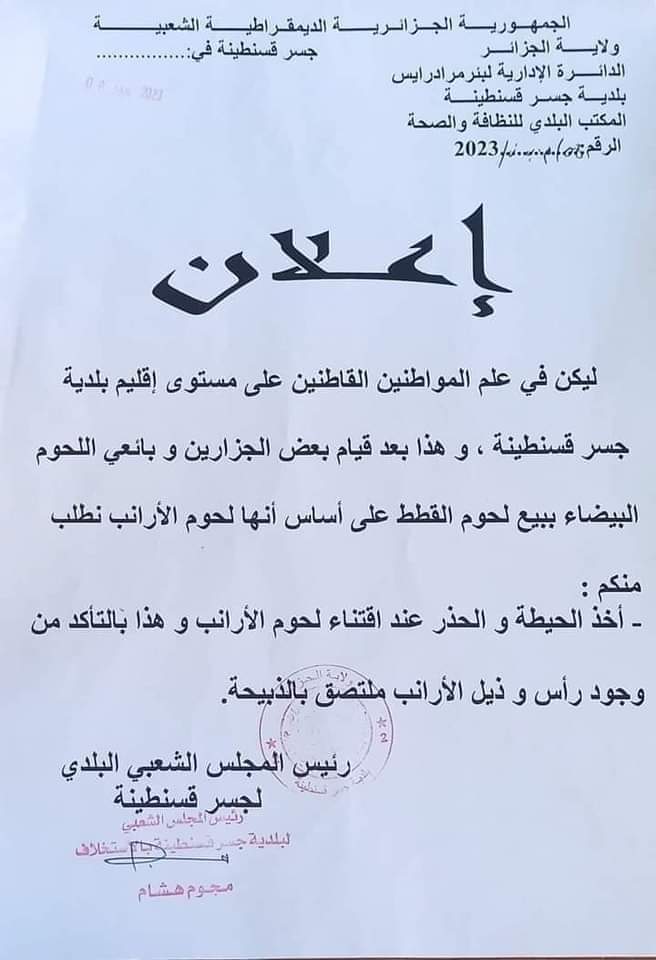 الجمهورية الجزائرية الديمقراطية الشعبية
ولاية الجزائر
جسر قسنطينة في:................
الدائرة الإدارية لبئرمرادرايس
بلدية جسر قسنطينة
المكتب البلدي للنظافة والصحة
الرقم: /2023
2023
إعلان
ليكن في علم المواطنين القاطنين على مستوى إقليم بلدية
جسر قسنطينة ، و هذا بعد قيام بعض الجزارين و بائعي اللحوم
البيضاء ببيع لحوم القطط على أساس أنها لحوم الأرانب نطلب
منكم :
- أخذ الحيطة و الحذر عند اقتناء لحوم الأرانب و هذا بالتأكد من
وجود رأس و ذيل الأرانب ملتصق بالذبيحة.
رئيس المجلس الشعبي البلدي
لجسر قسنطينة
رئيس المجلس الشعبي
لبلدية جسر قسنطينة بالاستخلاف
مجوم هشام
ولاية الجزائر
2
بلدية جسر قسنطينة